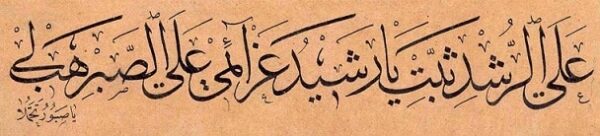 عَلَى الرُّشْدِ ثَبِّتْ يَا رَشِيدُ عَزَائِمِي عَلَى الصَّبْرِ هَبْ لِي
يَا صَبُورُ تَجَمُّلَا